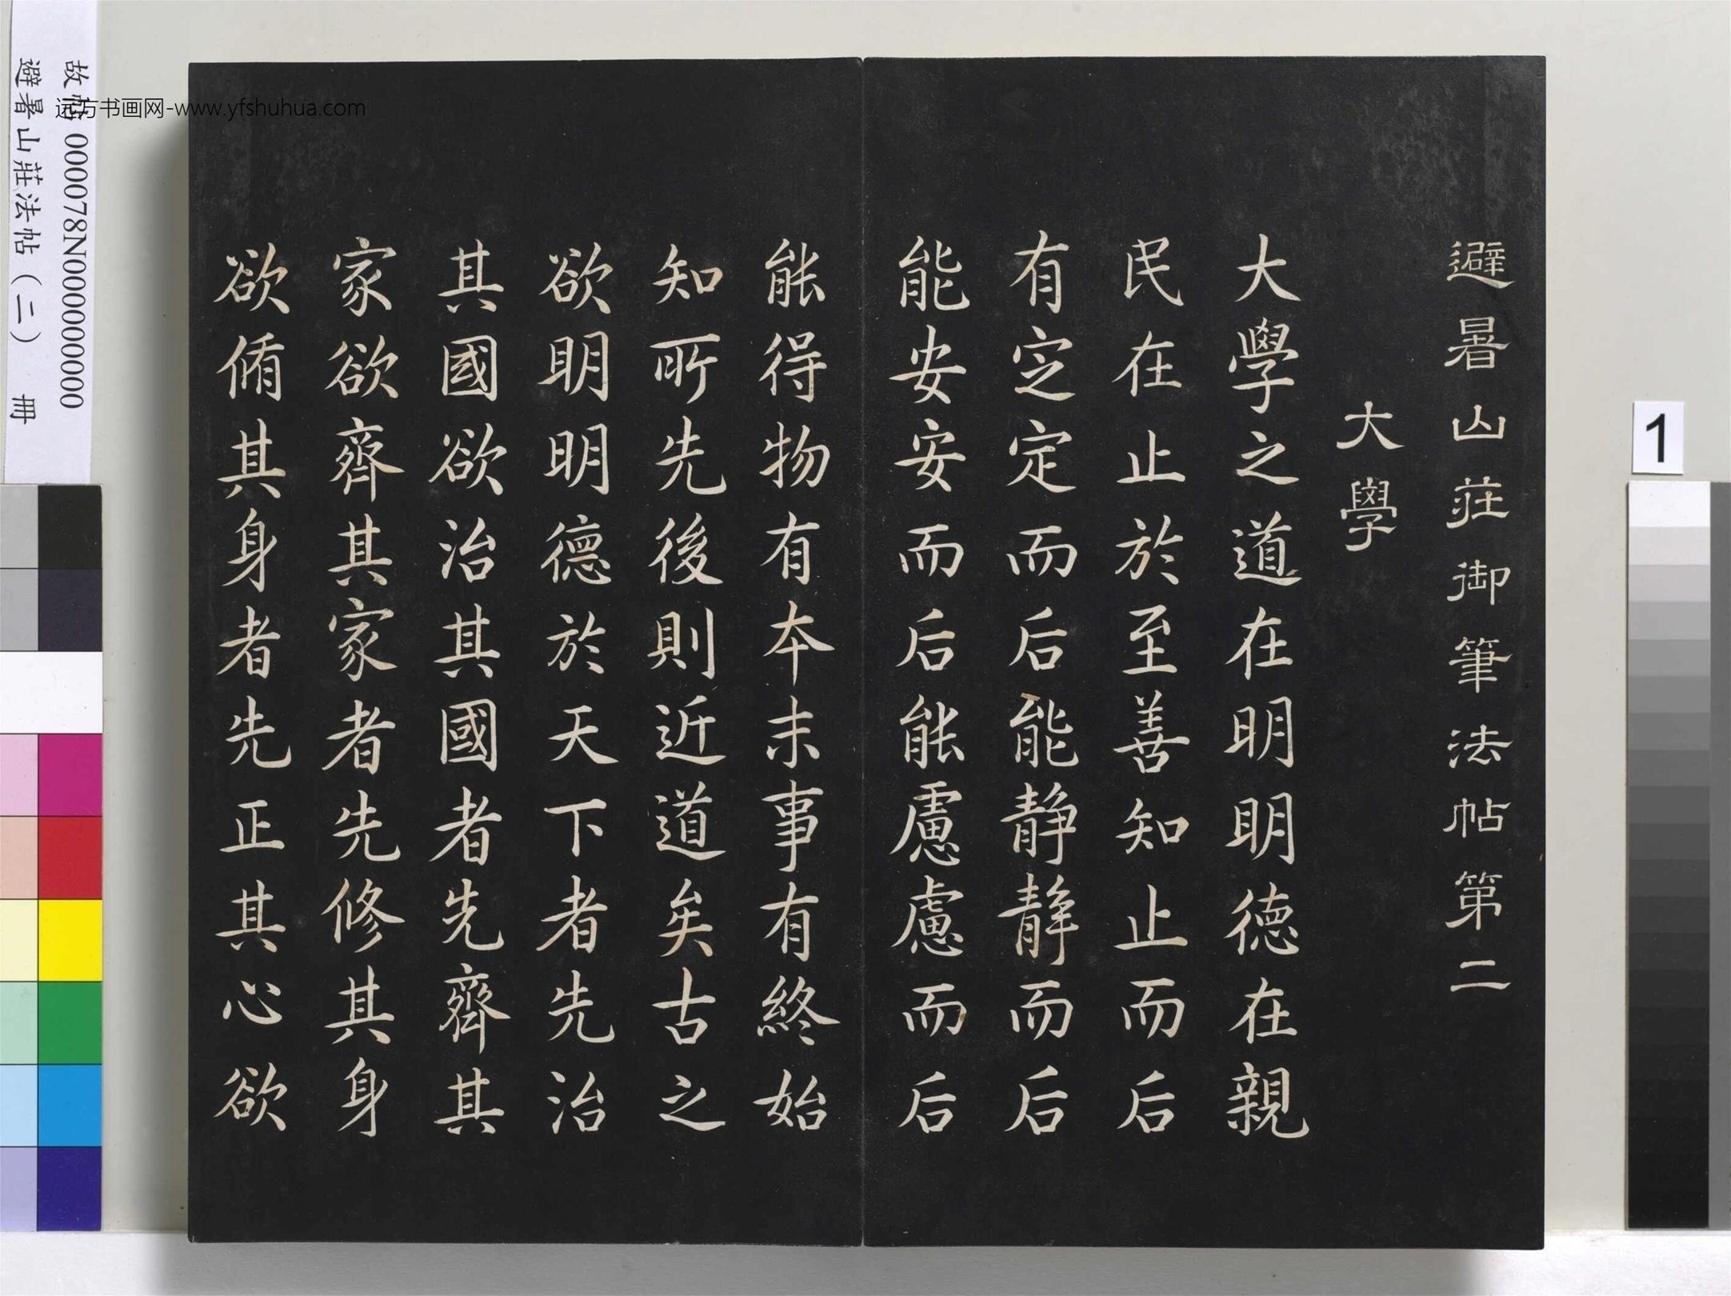 避暑山莊御筆法帖第二
大學
大學之道在明明德在親
民在止於至善知止而后
有定定而后能静静而后
能安安而后能慮慮而后
能得物有本末事有終始
知所先後則近道矣古之
欲明明德於天下者先治
其國欲治其國者先齊其
家欲齊其家者先修其身
欲脩其身者先正其心欲
故帖 000078N000000000
避暑山莊法帖（二） 冊
远方书画网-www.yfshuhua.com
1